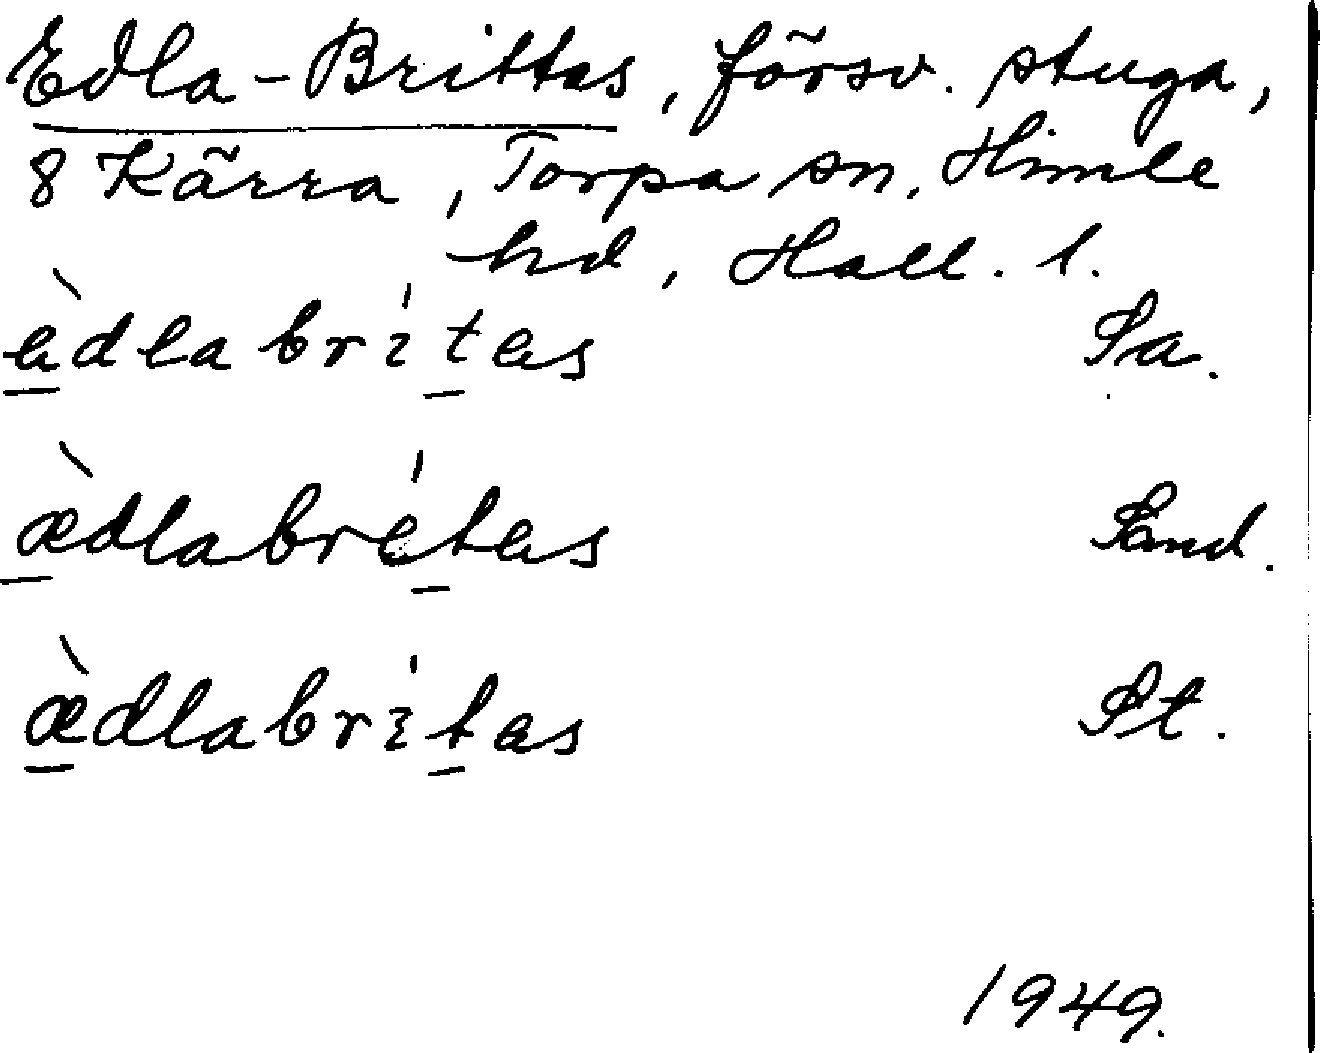 Edla-Brittas, försv. stuga,
8 Kärra, Torpa sn, Himle
hd, Hall. l.
àdlabrítas Sa.
æ̀dlabrétas Sand.
æ̀dlabrítas St.
1949.